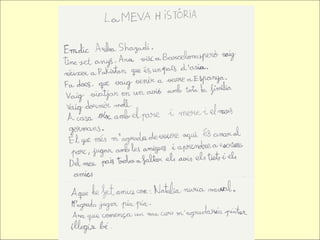 La MEVA HiSTÒRIA
Em dic Arfba Shazadi.
Tinc set anys. Ara visc a Barcelona però vaig
néixer a Pakistan que és un país d'asia.
Fa dos, que vaig venir a viure a Espanya.
Vaig viatjar en un avió amb tota la família
Vaig dormir molt.
A casa visc amb el pare i mare i el meus
germans.
El que més m'agrada de viure aquí és anar al
parc, jugar amb les amigues i aprendre a escriure
Del meu país trobo a faltar els avis els tiets i els
amics
A que he fet amics com: Natalia nuria
M'agrada jugar pia pia.
Ara que comença un nou curs m'agradaria pintar
illegir bé.